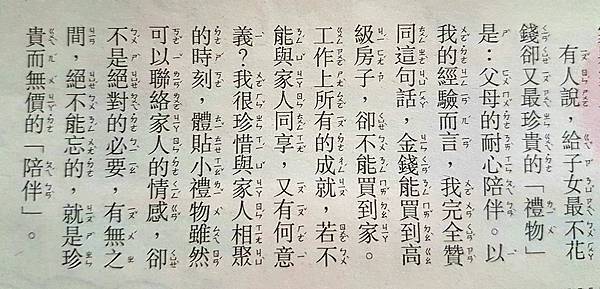 有人說，給子女最不花
錢卻又最珍貴的「禮物」
是：父母的耐心陪伴。以
我的經驗而言，我完全贊
同這句話，金錢能買到高
級房子，卻不能買到家。
工作上所有的成就，若不
能與家人同享，又有何意
義？我很珍惜與家人相聚
的時刻，體貼小禮物雖然
可以聯絡家人的情感，卻
不是絕對的必要，有無之
間，絕不能忘的，就是珍
貴而無價的「陪伴」。